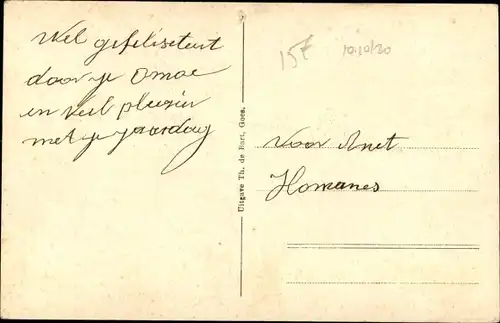 Wel gefeliseteert
door je Omoe
en veel plezier
met je jaardag
15f
10/10/20
Uitgave Th. de Bart, Goes.
voor Anet
Homanes